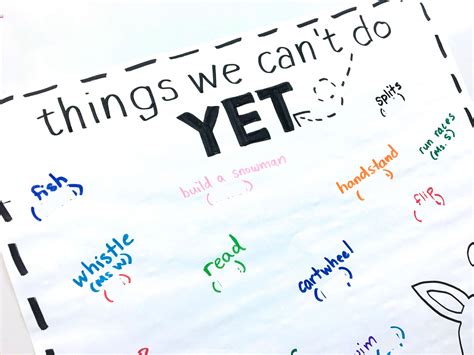 things we can't do
YET
splits
fish
build a snowman
handstand
run races
(Ms. S)
flip
whistle
(Ms W)
read
cartwheel